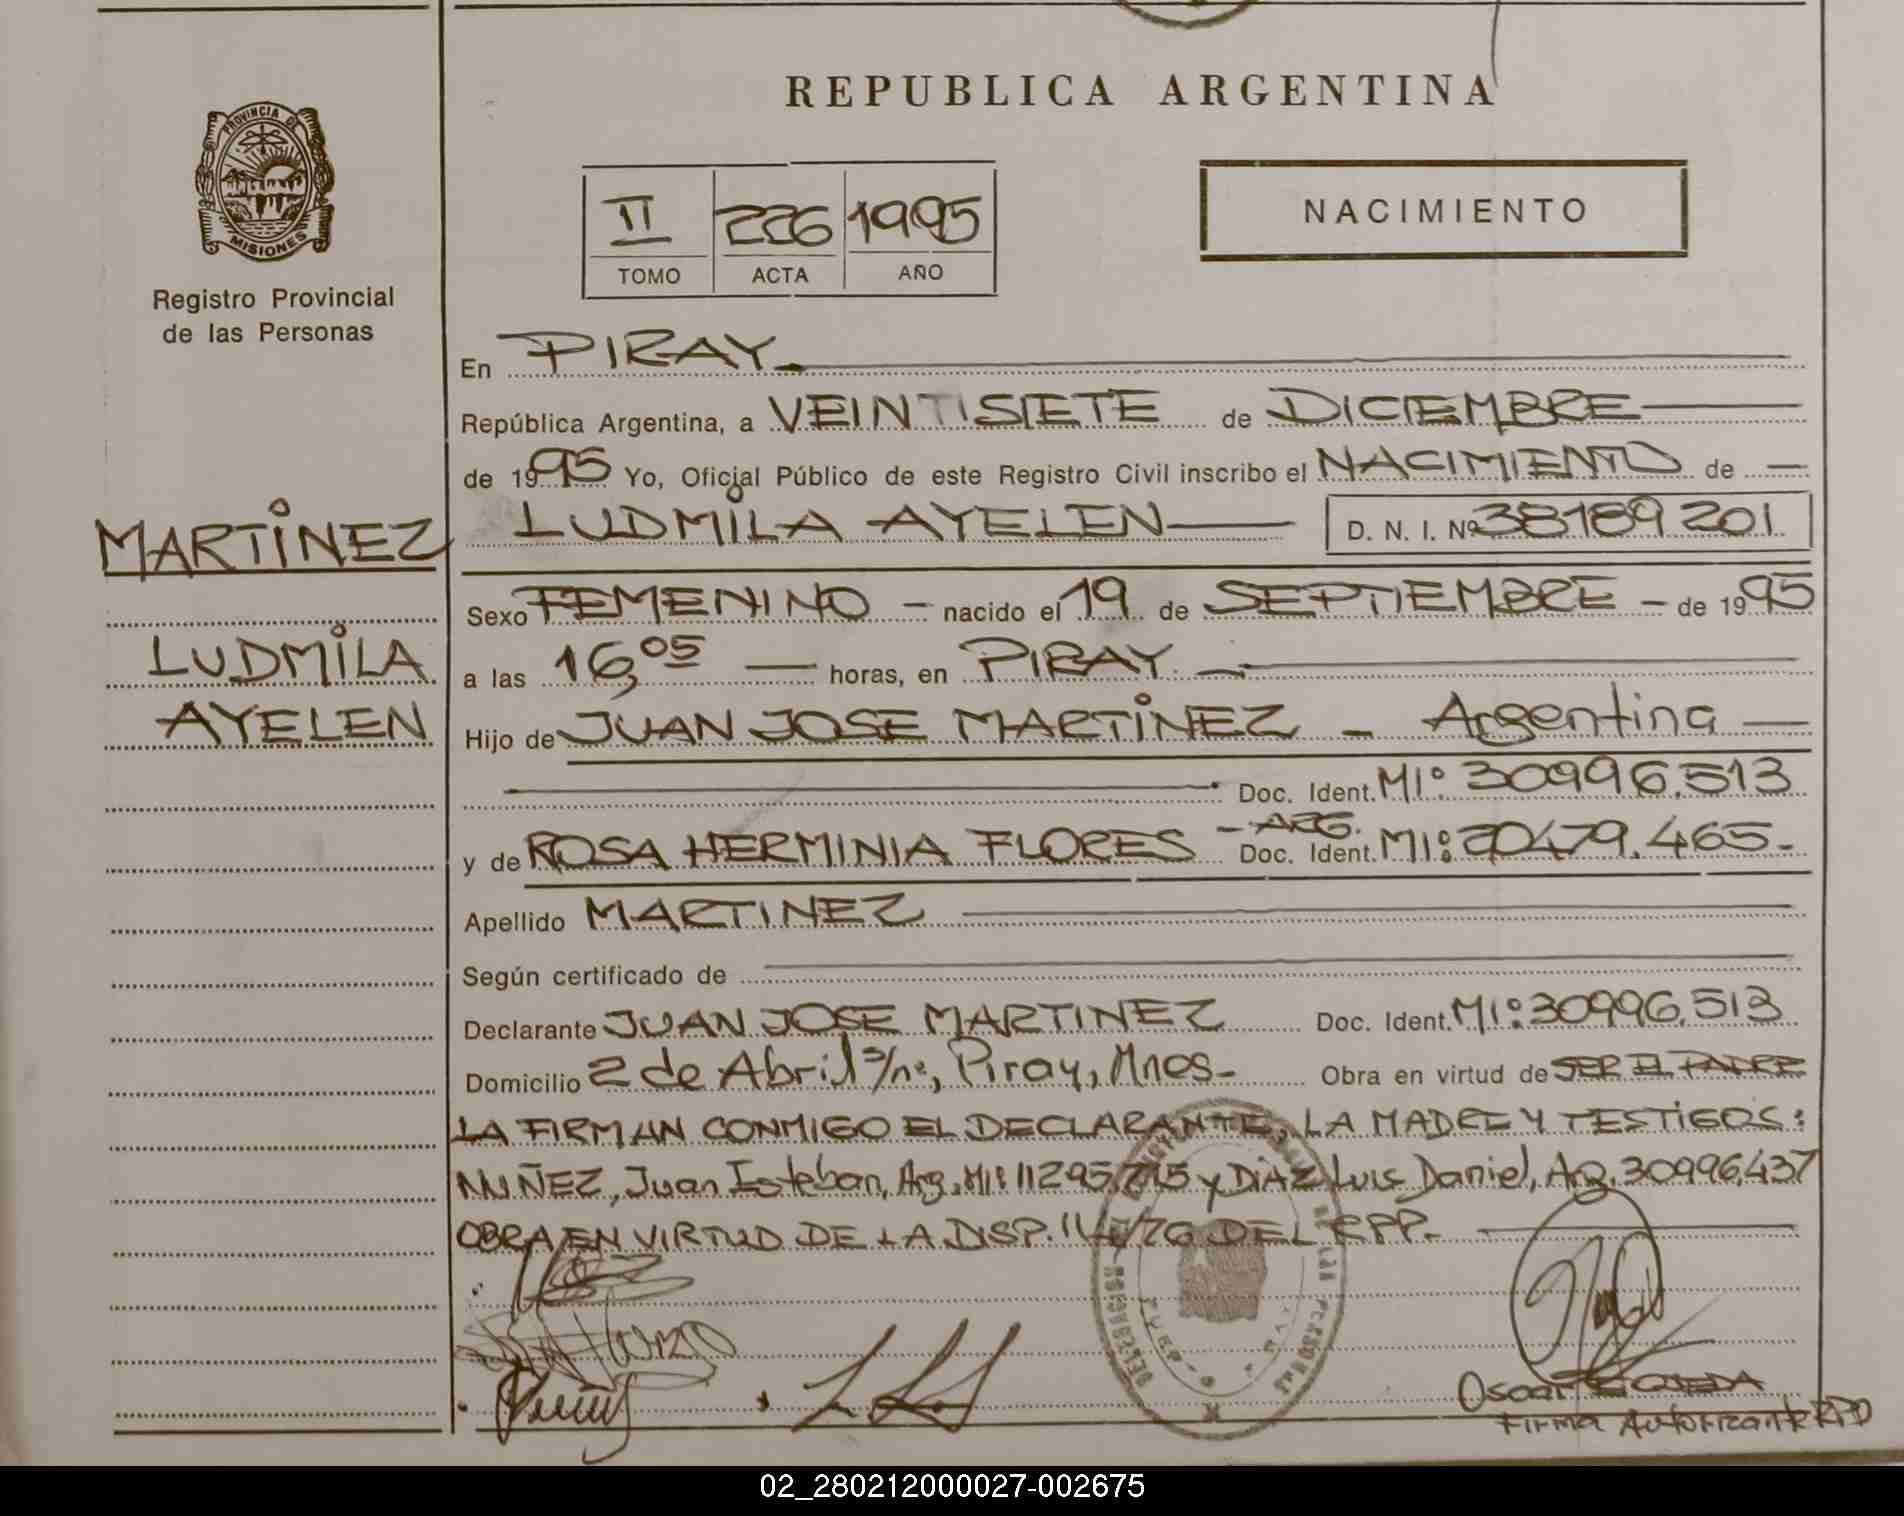 REPUBLICA ARGENTINA
PROVINCIA DE
MISIONES
Registro Provincial
de las Personas
II 226 1995
TOMO ACTA AÑO
NACIMIENTO
En PIRAY
República Argentina, a VEINTISIETE de DICIEMBRE
de 1995 Yo, Oficial Público de este Registro Civil inscribo el NACIMIENTO de
MARTINEZ
LUDMILA AYELEN D. N. I. Nº 38189201
Sexo FEMENINO - nacido el 19 de SEPTIEMBRE - de 1995
LUDMILA
a las 16,05 horas, en PIRAY
AYELEN
Hijo de JUAN JOSE MARTINEZ - Argentina
Doc. Ident. MIº 30996.513
y de ROSA HERMINIA FLORES - ARG. Doc. Ident. MI: 20479.465-
Apellido MARTINEZ
Según certificado de
Declarante JUAN JOSE MARTINEZ Doc. Ident. MIº 30996.513
Domicilio 2 de Abril s/nº, Piray, Mnes- Obra en virtud de SER EL PADRE
LA FIRMAN CONMIGO EL DECLARANTE, LA MADRE Y TESTIGOS:
NUÑEZ, Juan Esteban, Arg. MI: 11295.715 y DIAZ Luis Daniel, Arg. 30996.437
OBRA EN VIRTUD DE LA DISP. DEL RPP.
Oscar OJEDA
FIRMA Autorizante RPD
02_280212000027-002675